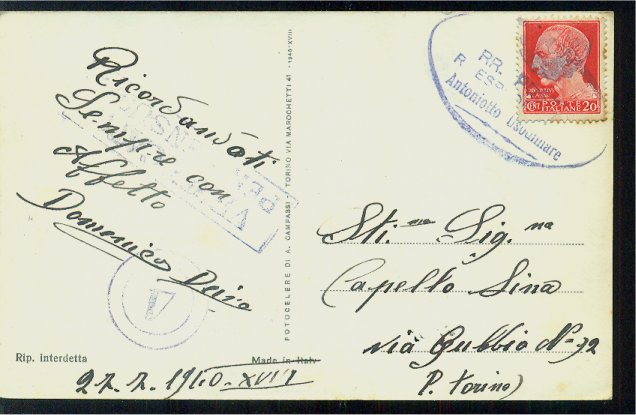 Ricordandoti
Sempre con
Affetto
Domenico
Rip. interdetta
Made in Italy
FOTOCELERE DI A. CAMPASSI - TORINO VIA MAROCHETTI 41 - 1940-XVIII
RR.
Antoniotto Usodimare
POSTE
ITALIANE
CENT 20
Sti.ma Sig.na
Capello Lina
via Gubbio No 92
P. Torino)